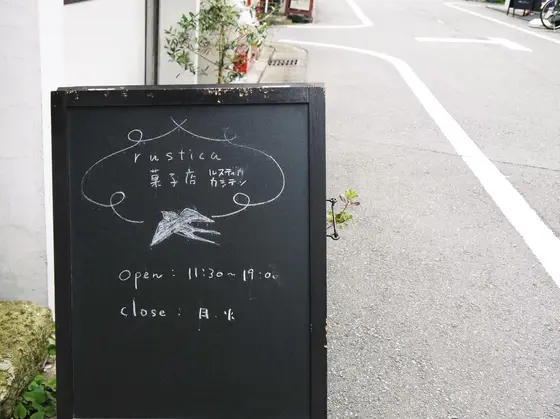 rustica
菓子店 ルスティカ
カシテン
open: 11:30~19:00
close: 月.火